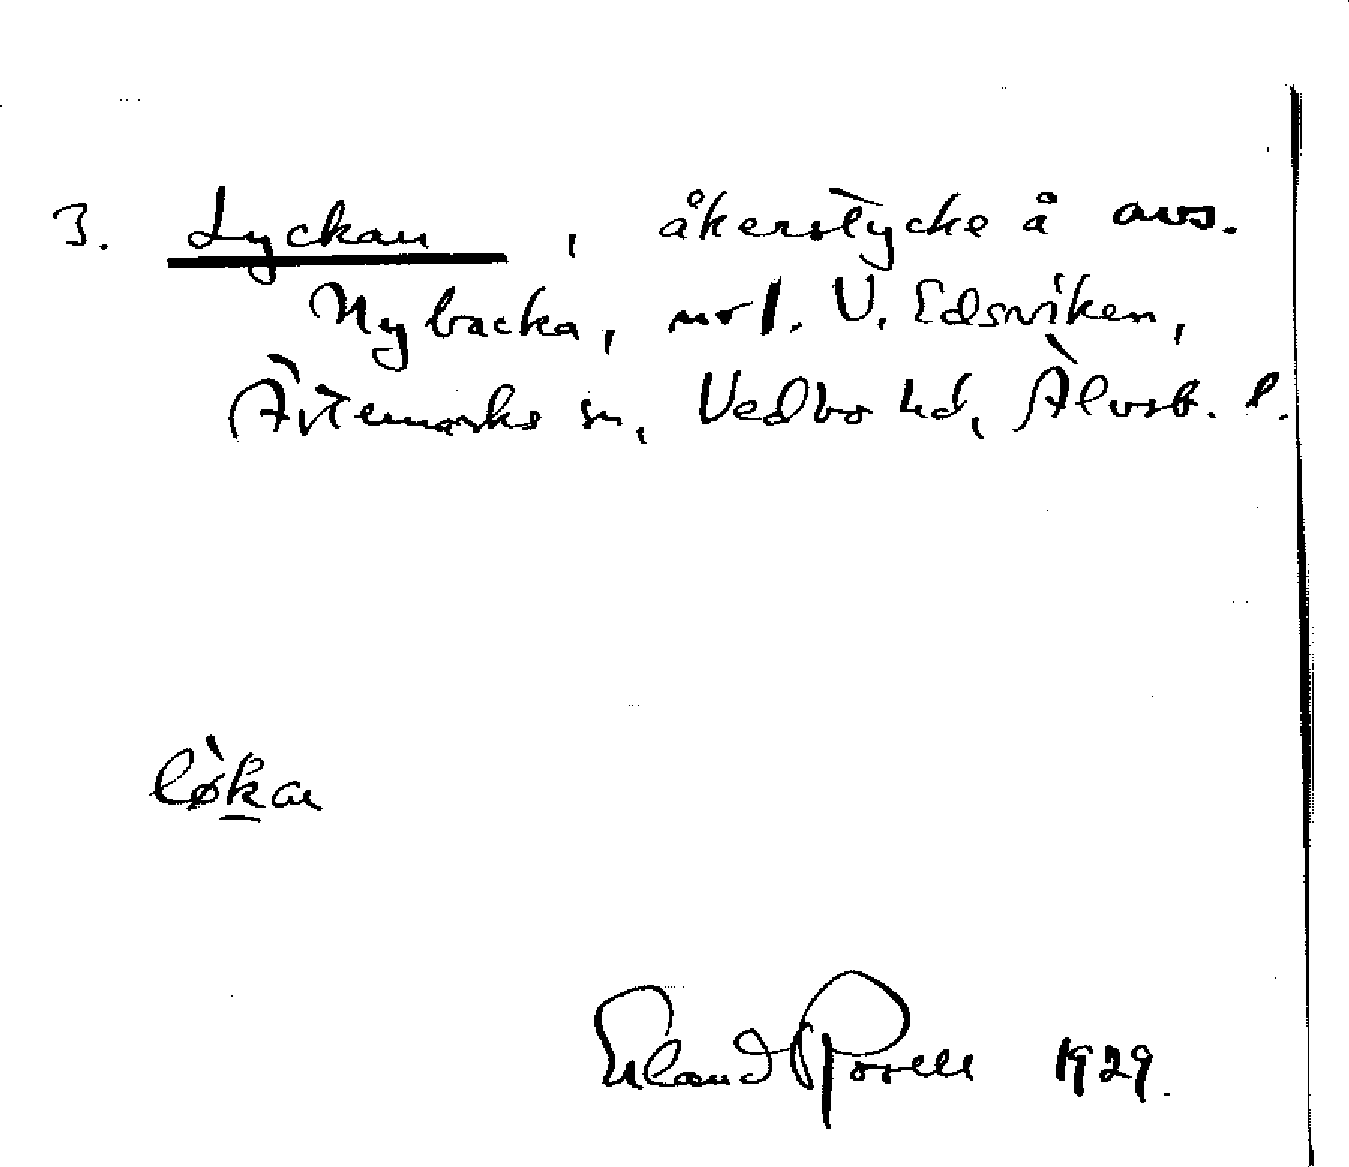 3. Lyckan, åkerstycke å avs.
Nybacka, url. V. Edsviken,
Ärtemarks sn, Vedbo hd, Älvsb. l.
lø̀kan
Erland Rosell 1929.